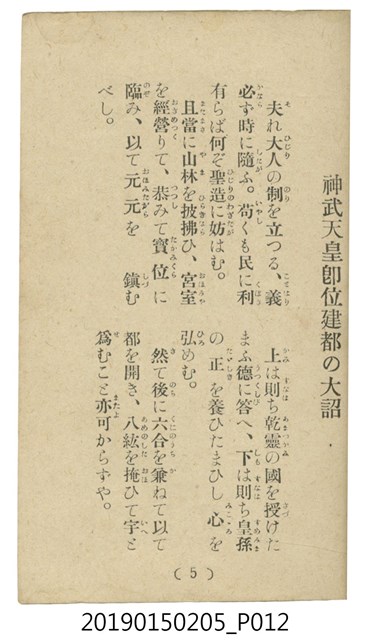 神武天皇卽位建都の大詔
夫れ大人の制を立つる、義
必ず時に隨ふ。苟くも民に利
有らば何ぞ聖造に妨はむ。
且當に山林を披拂ひ、宮室
を經營りて、恭みて寶位に
臨み、以て元元を鎭む
べし。
上は則ち乾靈の國を授けた
まふ德に答へ、下は則ち皇孫
の正を養ひたまひし心を
弘めむ。
然て後に六合を兼ねて以て
都を開き、八紘を掩ひて宇と
爲むこと亦可からずや。
(5)
20190150205_P012